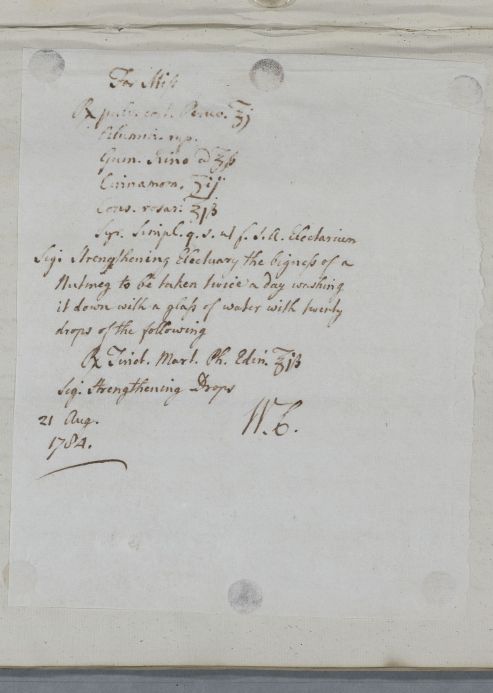 For Miss
℞ pulv. cort. Peruv. ℥j
Alumin. rup.
Gum. Kino a ʒß
Cinnamom. ʒij
Cons. rosar. ℥jß
Syr. Simpl. q. s. ut f. S. A. Electarium
Sig. Strengthening Electuary the bigness of a
Nutmeg to be taken twice a day washing
it down with a glass of water with twenty
drops of the following
℞ Tinct. Mart. Ph. Edin. ℥jß
Sig. Strengthening Drops
21 Aug.
1784.
W. C.